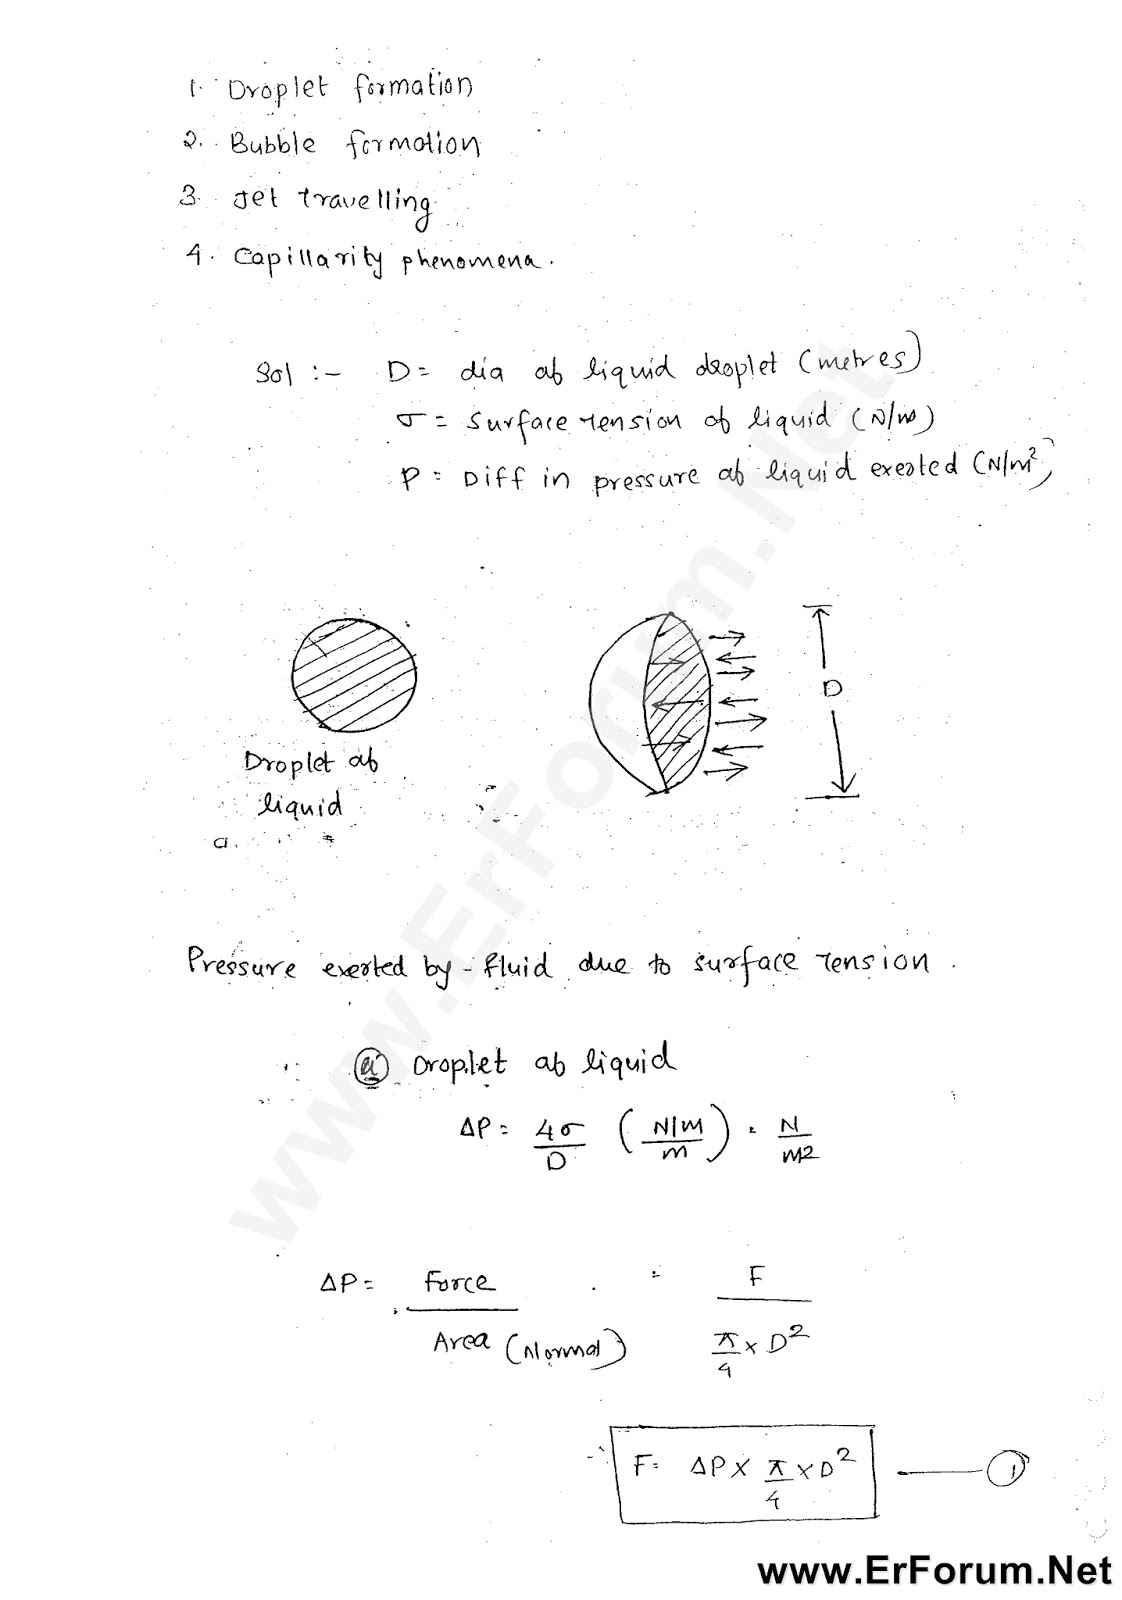 1. Droplet formation
2. Bubble formation
3. Jet travelling
4. Capillarity phenomena.
Sol :- D = dia of liquid droplet (metres)
σ = surface tension of liquid (N/m)
P = Diff in pressure of liquid exerted (N/m²)
D
Droplet of
liquid
Pressure exerted by fluid due to surface tension.
a Droplet of liquid
ΔP = 4σ/D (N/m / m) = N/m2
ΔP = Force / Area (Normal) = F / π/4 × D²
F = ΔP × π/4 × D² —— 1
www.ErForum.Net
www.ErForum.Net